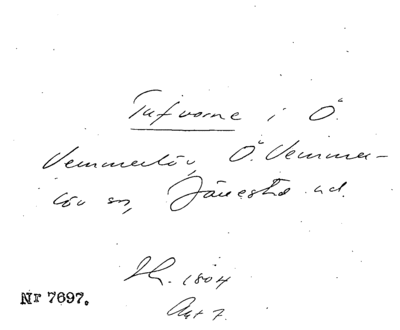 Tufvorne i Ö.
Vemmerlöv, Ö. Vemmer-
löv sn, Järrestad hd.
Ih. 1804
Akt 7.
Nr 7697.